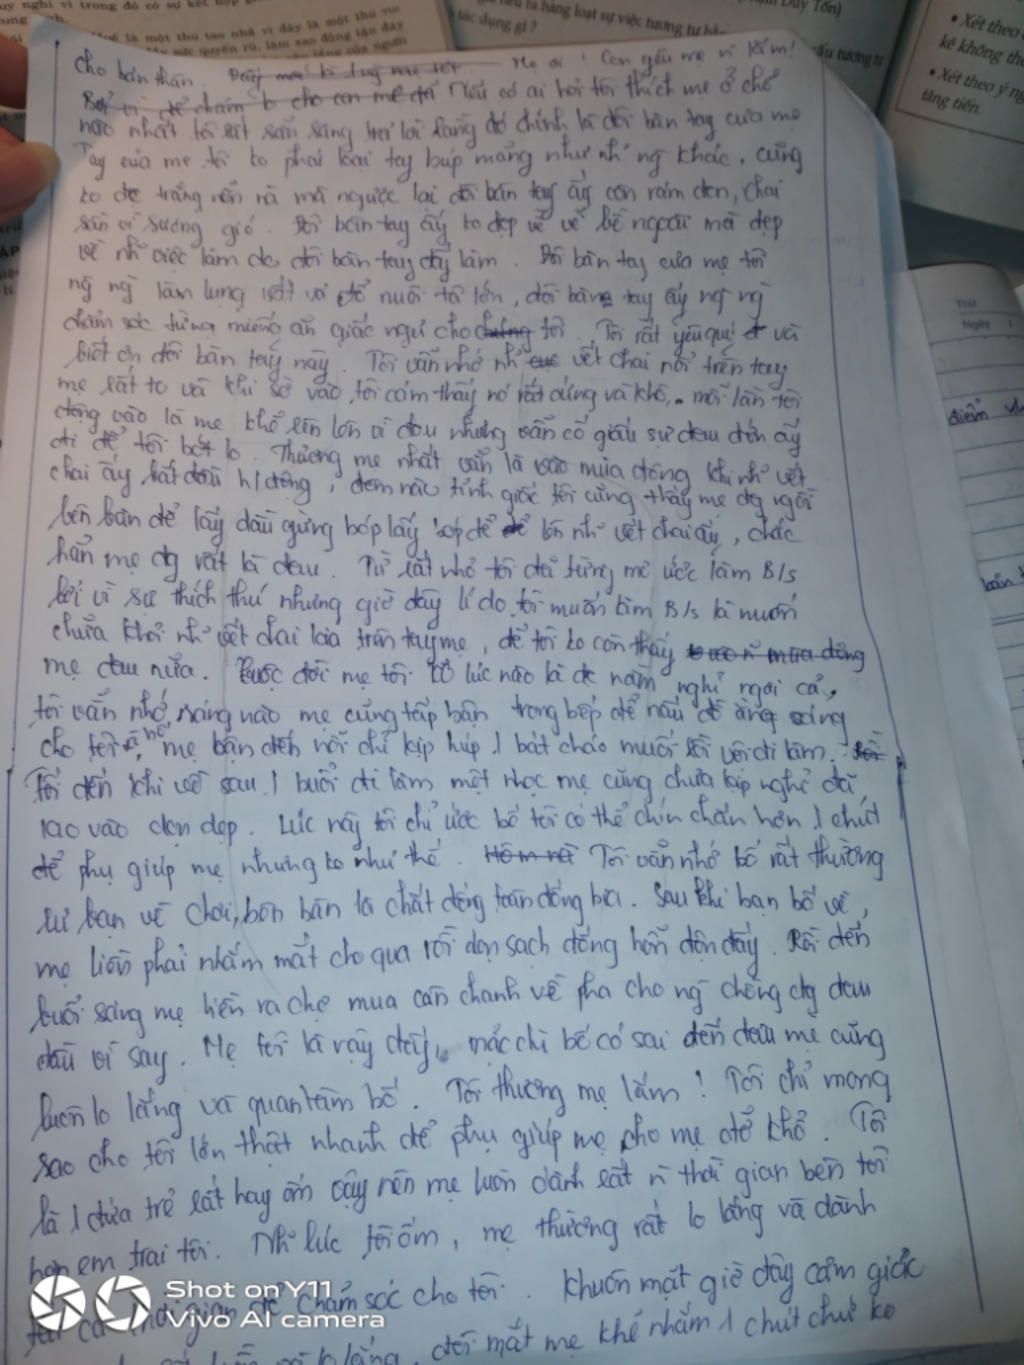 uy nghi vì trong đó có sự kết hợp
là một thu tao nhã vì đây là một thu vui
sức quyến rũ, làm sao động tận đáy
của người
ra hàng loạt sự việc tương tự
tác dụng gì ?
Duy Tốn)
ấu tương tự
• Xét theo
kê không th
• Xét theo ý ng
tăng tiến.
Thứ
Ngày
điểm
bản
cho bản thân. Mẹ ơi ! Con yêu mẹ vì lắm!
Nếu có ai hỏi tôi thích mẹ ở chỗ
nào nhất tôi rất sẵn sàng trả lời rằng đó chính là đôi bàn tay của mẹ
Tay của mẹ tôi ko phải loại tay búp măng như nh~ ng khác, cũng
ko đc trắng nõn nà mà ngược lại đôi bàn tay ấy còn rám đen, chai
sần vì sương gió. Đôi bàn tay ấy ko đẹp về vẻ bề ngoài mà đẹp
về nh~ việc làm do đôi bàn tay đấy làm. Đôi bàn tay của mẹ tôi
ng ng làm lụng vất vả để nuôi tôi lớn, đôi bàn tay ấy ng ng
chăm sóc từng miếng ăn giấc ngủ cho chúng tôi. Tôi rất yêu quý và
biết ơn đôi bàn tay này. Tôi vẫn nhớ nh~ vết chai nổi trên tay
mẹ rất to và khi sờ vào, tôi cảm thấy nó rất cứng và khô, mỗi lần tôi
động vào là mẹ khẽ lên vì đau nhưng vẫn cố giấu sự đau đớn ấy
đi để tôi bớt lo. Thương mẹ nhất vẫn là vào mùa đông khi nh~ vết
chai ấy bắt đầu h/động, đêm nào tỉnh giấc tôi cũng thấy mẹ đg ngồi
bên bàn để lấy dầu gừng bóp lấy bóp để nh~ vết chai ấy, chắc
hẳn mẹ đg rất là đau. Từ rất nhỏ tôi đã từng mơ ước làm B/s
bởi vì sự thích thú nhưng giờ đây lí do tôi muốn làm B/s là muốn
chữa khỏi nh~ vết chai của trên tay mẹ, để tôi ko còn thấy ko vào mùa đông
mẹ đau nữa. Cuộc đời mẹ tôi ko lúc nào là đc nằm nghỉ ngơi cả,
tôi vẫn nhớ, sáng nào mẹ cũng tấp bận trong bếp để nấu đồ ăng sáng
cho tôi và bố mẹ bận đến nỗi chỉ kịp húp 1 bát cháo muối rồi vội đi làm.
Tối đến khi về sau 1 buổi đi làm mệt nhọc mẹ cũng chưa kịp nghỉ đã
lao vào dọn dẹp. Lúc này tôi chỉ ước bố tôi có thể chín chắn hơn 1 chút
để phụ giúp mẹ nhưng ko như thế. Tôi vẫn nhớ bố rất thường
rủ bạn về chơi, bên bàn là chất đống toàn đống bia. Sau khi bạn bố về,
mẹ liền phải nhắm mắt cho qua rồi dọn sạch đống hỗn độn đấy. Rồi đến
buổi sáng mẹ liền ra chợ mua cân chanh về pha cho ng chồng đg đau
đầu vì say. Mẹ tôi là vậy đấy, mặc chi bố có sai đến đâu mẹ cũng
luôn lo lắng và quan tâm bố. Tôi thương mẹ lắm ! Tôi chỉ mong
sao cho tôi lớn thật nhanh để phụ giúp mẹ cho mẹ đỡ khổ. Tôi
là 1 đứa trẻ rất hay ốm vậy nên mẹ luôn dành rất n thời gian bên tôi
hơn em trai tôi. Nh~ lúc tôi ốm, mẹ thường rất lo lắng và dành
tất cả thời gian để chăm sóc cho tôi. Khuôn mặt giờ đây cảm giác
đôi mắt mẹ khẽ nhắm 1 chút chứ ko
Shot on Y11
Vivo AI camera